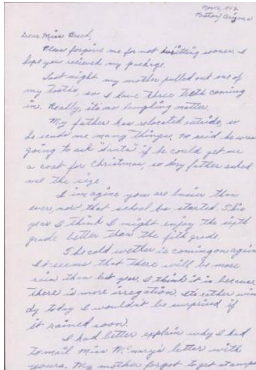 Nov. 
Poston, Arizona
Dear Miss Breed,
Please forgive me for not writing sooner. I
hope you received my package.
Last night my mother pulled out one of
my tooths, so I have three tooth coming
in. Really, its no laughing matter.
My father has relocated outside, so
he sends me many things, he said he was
going to ask "Santa" if he could get me
a coat for Christmas, so my father asked
me the size.
I imagine you are busier than
ever, now that school has started. This
year I think I might enjoy the sixth
grade better than the fifth grade.
The cold weather is coming on again
It seems that there will be more
rain than last year, I think it is because
there is more irregation. Its rather win
dy today I wouldn't be surprised if
it rained soon.
I had better explain why I had
to mail Miss letter with
yours. My mother forgot to get stamps